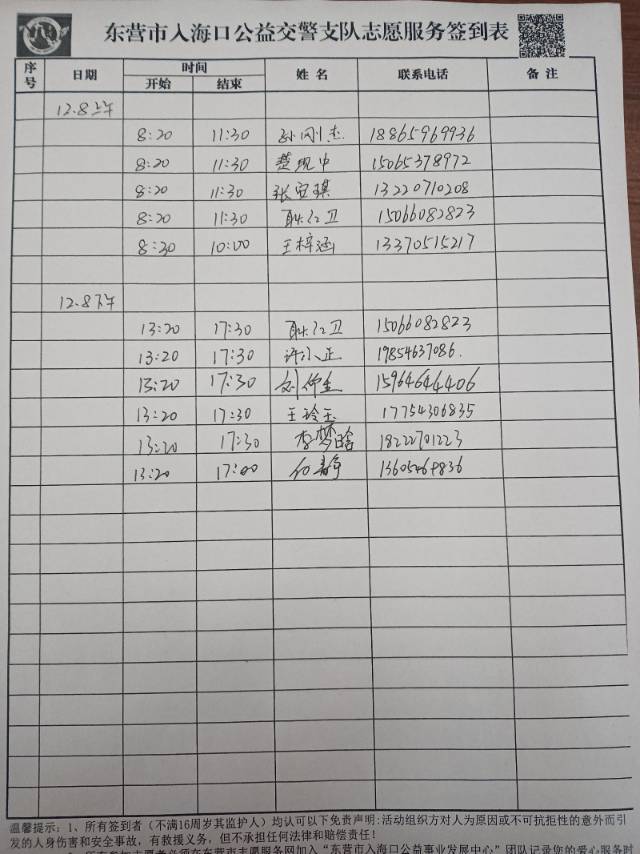 东营市入海口公益交警支队志愿服务签到表
序号 日期 时间 姓名 联系电话 备注
开始 结束
12.8上午
8:20 11:30 孙刚杰 18865969936
8:20 11:30 楚现中 15065378972
8:20 11:30 张宝琪 13220710208
8:20 11:30 耿红卫 15066082823
8:30 10:00 王梓涵 13370515217
12.8下午
13:20 17:30 耿红卫 15066082823
13:20 17:30 许小正 19854637086.
13:20 17:30 刘仰生 15964644406
13:20 17:30 王玲玉 17754306835
13:20 17:30 李梦晗 18222701223
13:20 17:00 静
温馨提示：1、所有签到者（不满16周岁其监护人）均认可以下免责声明:活动组织方对人为原因或不可抗拒性的意外而引
发的人身伤害和安全事故，有救援义务，但不承担任何法律和赔偿责任！
所有参加志愿者必须在东营市志愿服务网加入“东营市入海口公益事业发展中心”团队记录您的爱心服务时